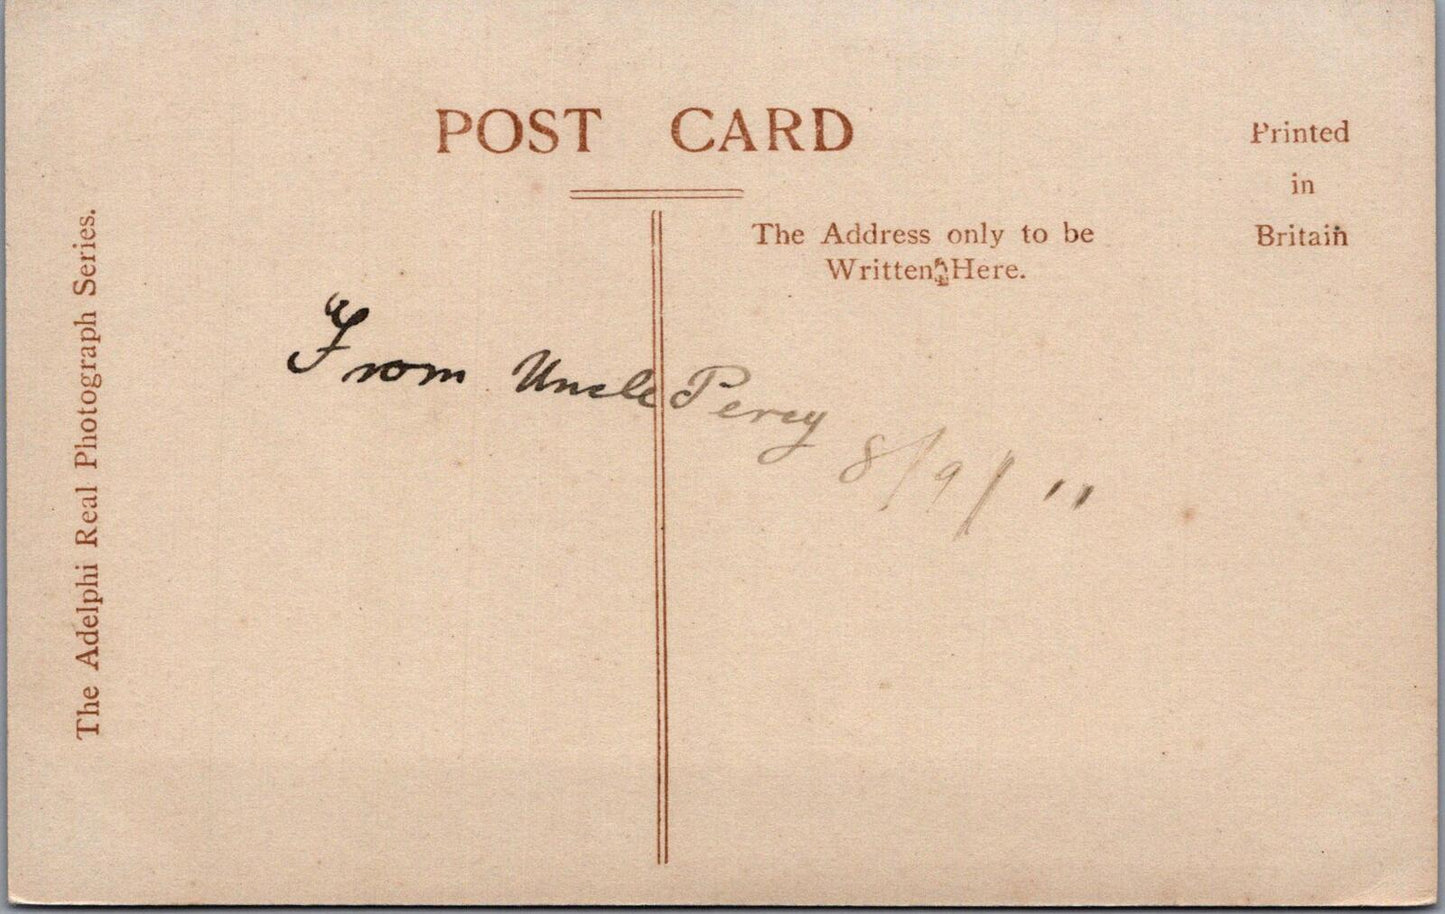 POST CARD
Printed
in
Britain
The Address only to be
Written Here.
The Adelphi Real Photograph Series.
From Uncle Percy 8/9/11